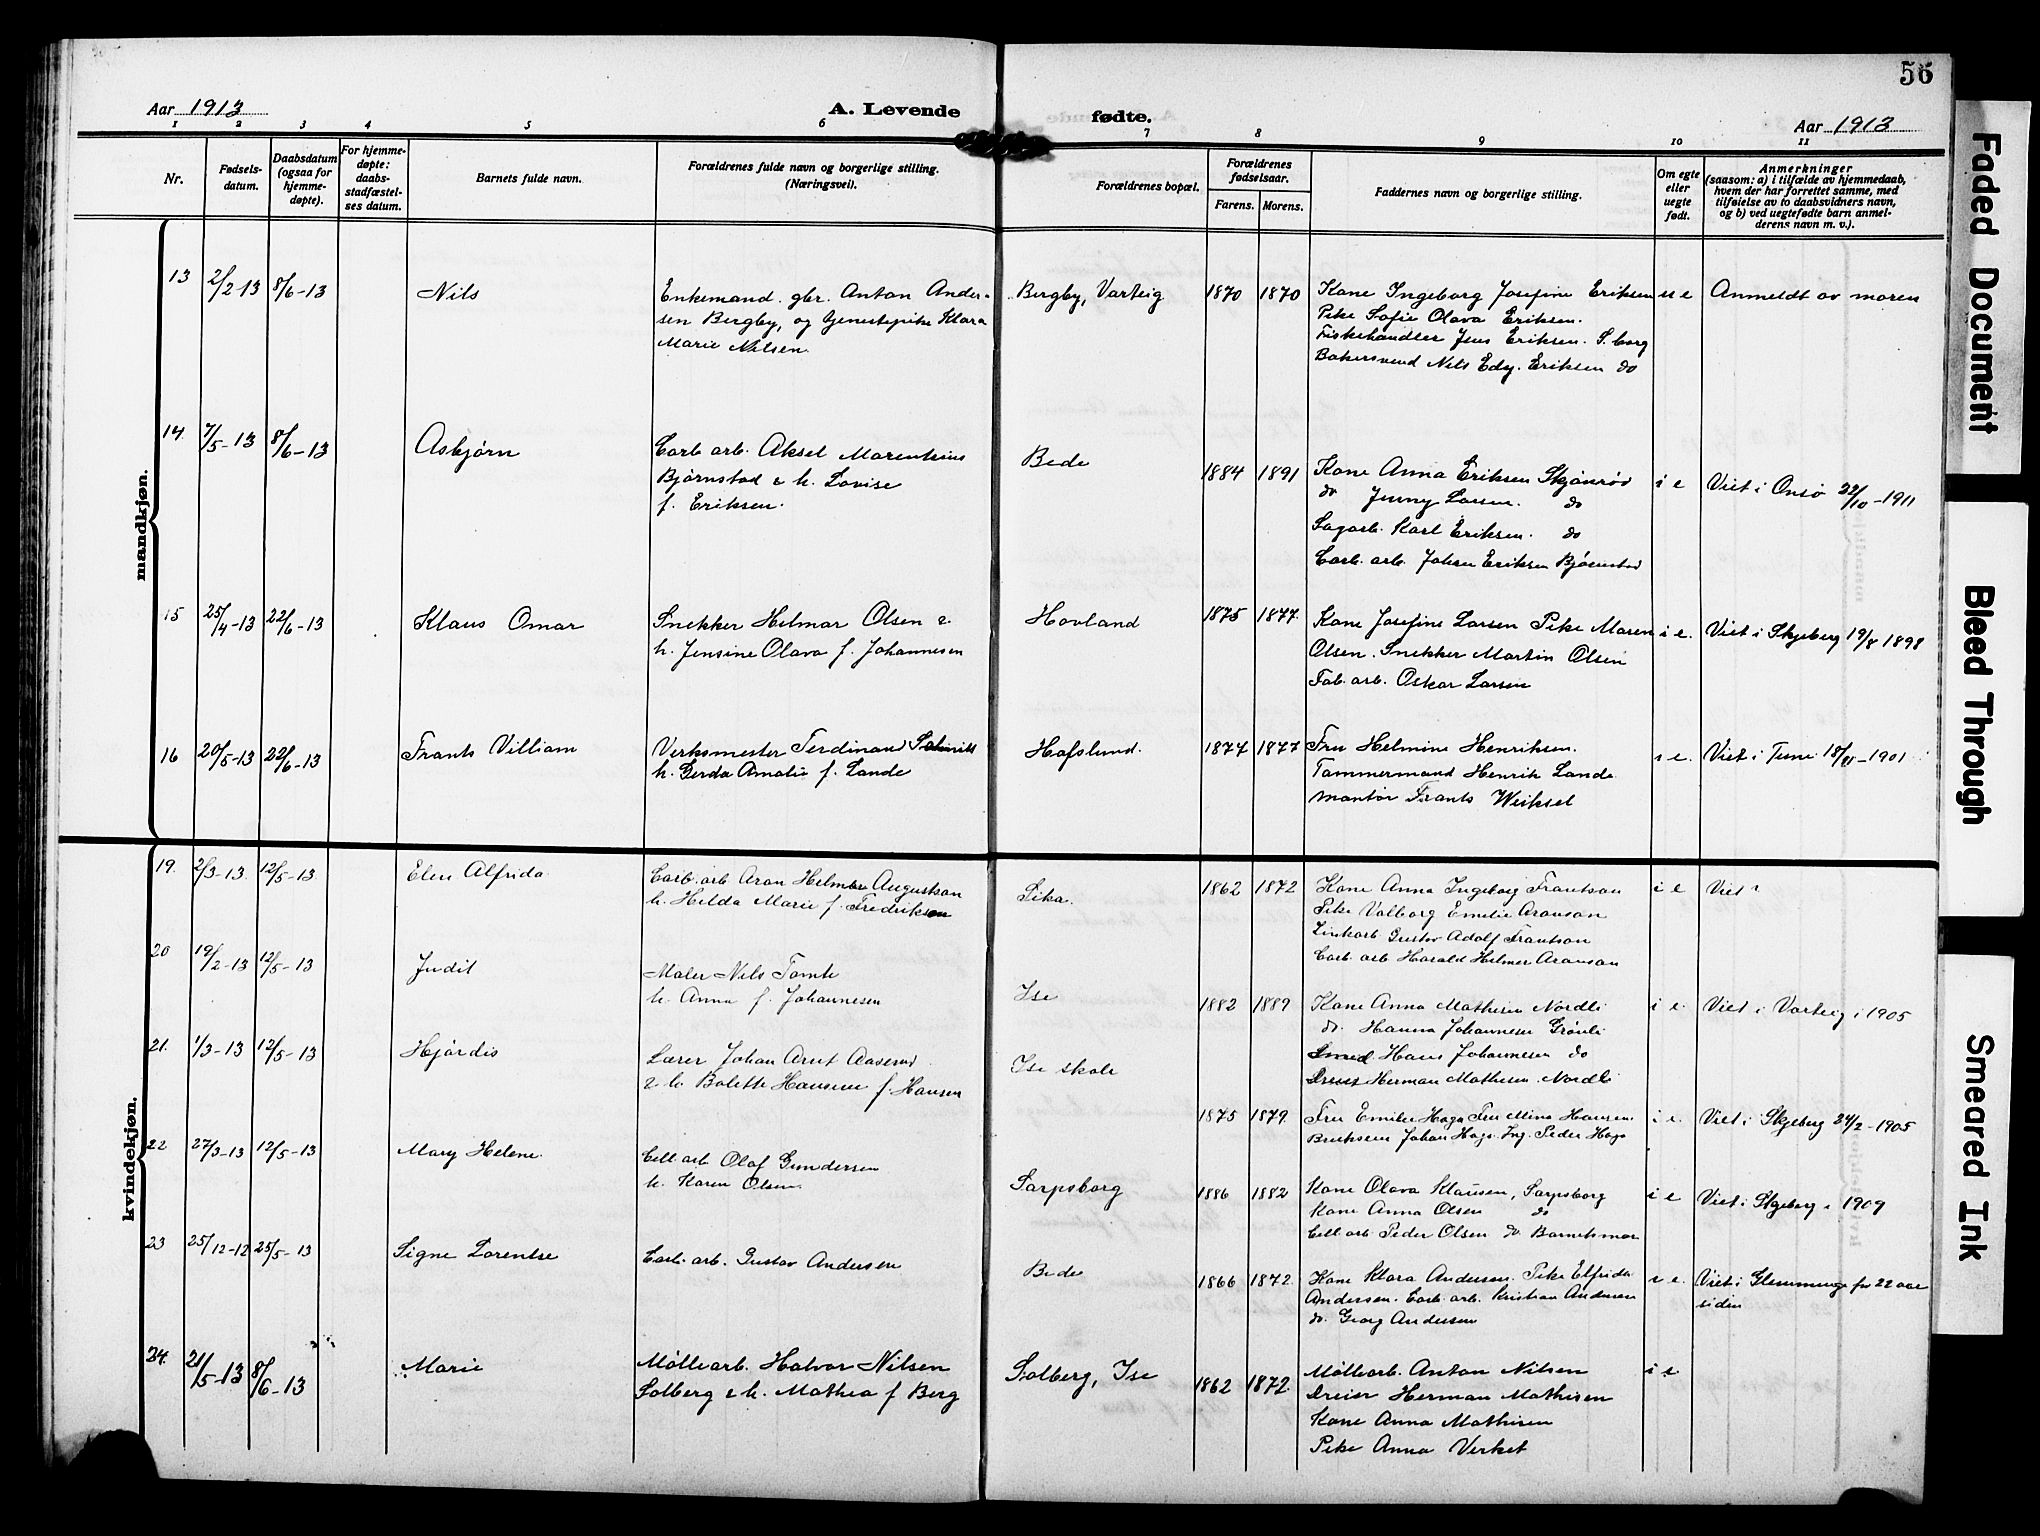 56
Aar 1913
A. Levende
fødte.
Aar 1913
1 2 3 4 5 6 7 8 9 10 11
Nr.
Fødsels-
datum.
Daabsdatum
(ogsaa for
hjemme-
døpte).
For hjemme-
døpte:
daabs-
stadfæstel-
ses datum.
Barnets fulde navn.
Forældrenes fulde navn og borgerlige stilling.
(Næringsvei).
Forældrenes bopæl.
Forældrenes
fødselsaar.
Farens. Morens.
Faddernes navn og borgerlige stilling.
Om egte
eller
uegte
født.
Anmerkninger
(saasom: a) i tilfælde av hjemmedaab,
hvem der har forrettet samme, med
tilføielse av to daabsvidners navn,
og b) ved uegtefødte barn anmel-
derens navn m. v.).
mandkjøn.
13 2/2-13 8/6-13 Nils
Enkemand. gbr. Anton Ander-
sen Bergby, og tjenestepike Klara
Marie Nilsen.
Bergby, Varteig 1870 1870
Kone Ingeborg Josefine Eriksen
Pike Sofie Olava Eriksen.
Fiskehandler Jens Eriksen. S.borg
Bakersvend Nils Edv. Eriksen do
u e Anmeldt av moren
14. 7/5-13 8/6-13 Asbjørn
Carb. arb. Aksel Marentius
Bjørnstad & h. Lovise
f. Eriksen.
Bede 1884 1891
Kone Anna Eriksen Skjønrød
do Jenny Larsen. do
Sagarb. Karl Eriksen. do
Carb. arb. Johan Eriksen Bjørnstad
i e Viet i Onsø 22/10-1911
15 25/4-13 22/6-13 Klaus Omar
Snekker Helmar Olsen &
h. Jensine Olava f. Johannesen
Hovland 1875 1877.
Kone Josefine Larsen Pike Maren
Olsen. Snekker Martin Olsen
Fab. arb. Oskar Larsen
i e. Viet i Skjeberg 19/8 1898
16 20/5-13 22/6-13 Frants Villiam
Verksmester Ferdinand
h. Gerda Amalie f. Lande
Hafslund. 1874 1877
Fru Helmine Henriksen.
Tømmermand Henrik Lande
Montør Frants Weiksel
i e. Viet i Tune 18/11-1901
kvindekjøn.
19. 2/3-13. 12/5-13 Elen Alfrida
Carb. arb Aron Helmer Augustson
h. Hilda Marie f. Fredriksen
Sika. 1862 1872
Kone Anna Ingeborg Frantson
Pike Valborg Emelie Aronson
Zinkarb. Gustav Adolf Frantson
Carb. arb Harald Helmer Aronson
i e Viet ?
20 19/2-13 12/5-13 Judit
Maler Nils Tomte
h. Anna f. Johannesen
Ise 1882 1889
Kone Anna Mathisen Nordli
do. Hanna Johannesen Grønli
Smed Hans Johannesen do
Dreier Herman Mathisen. Nordli
i e. Viet i Varteig i 1905
21. 1/3-13 12/5-13 Hjørdis
Lærer Johan Arnt Aaserud
& h. Bolette Hansine f. Hansen
Ise skole 1875 1879.
Fru Emilie Haga Fru Mina Hansen
Johan Haga. Ing. Peder Haga
i e. Viet i Skjeberg 24/2-1905
22 27/3-13 12/5-13 Mary Helene.
Cell. arb. Olaf Gundersen
h. Karen Olsen
Sarpsborg 1886 1882
Kone Olava Klausen, Sarpsborg
Kone Anna Olsen do
Cell. arb. Peder Olsen do Barnets mor
i e Viet i Skjeberg i 1909
23 25/12-12 25/5-13 Signe Lorentse
Carb. arb. Gustav Andersen
Bede 1866 1872.
Kone Klara Andersen. Pike Elfrida
Andersen. Carb. arb. Kristian Andersen
do. Georg Andersen
i e. Viet i Glemminge for 22 aar
siden
24. 21/5-13 8/6-13 Marie
Møllearb. Halvor Nilsen
Solberg & h. Mathea f Berg
Solberg, Ise 1862 1872.
Møllearb. Anton Nilsen
Dreier Herman Mathisen
Kone Anna Mathisen
Pike Anna Verket
i e
Faded Document
Bleed Through
Smeared Ink